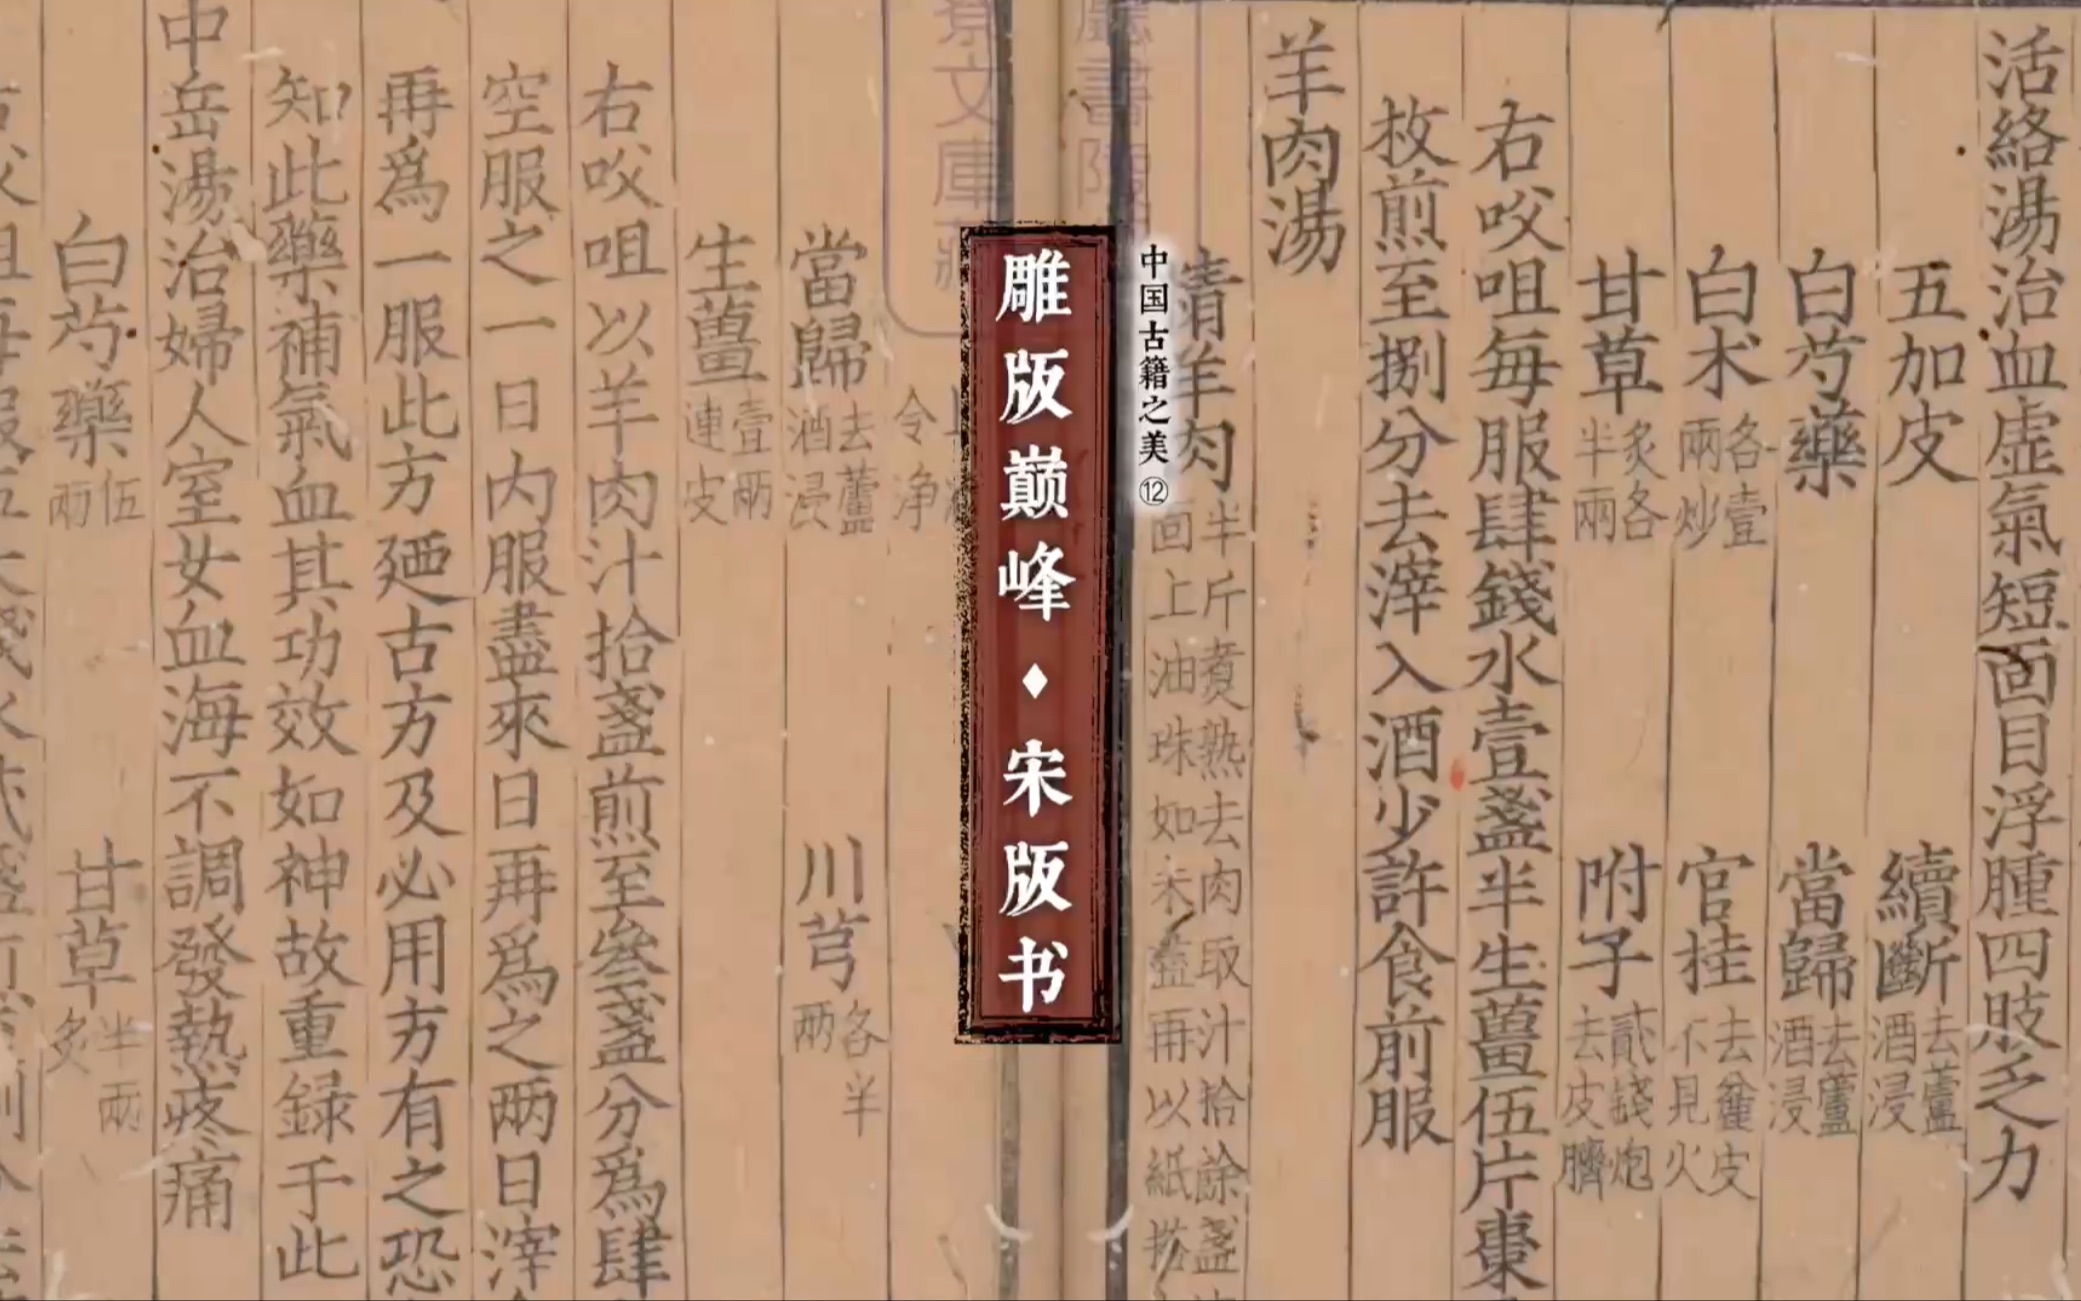 活絡湯治血虛氣短面目浮腫四肢乏力
五加皮 續斷去蘆酒浸
白芍藥 當歸去蘆酒浸
白术各壹兩炒 官桂去麁皮不見火
甘草炙各半兩 附子貳錢炮去皮臍
右㕮咀每服肆錢水壹盞半生薑伍片棗
枚煎至捌分去滓入酒少許食前服
羊肉湯
羊肉半斤煑熟去肉取汁拾餘盞
面上油珠如未盡再以紙搭
中国古籍之美⑫
雕版巅峰·宋版书
文庫
令净
當歸去蘆酒浸 川芎各半兩
生薑壹兩連皮
右㕮咀以羊肉汁拾盞煎至叁盞分爲肆
空服之一日内服盡來日再爲之兩日滓
再爲一服此方廼古方及必用方有之恐
知此藥補氣血其功效如神故重録于此
中岳湯治婦人室女血海不調發熱疼痛
白芍藥伍兩 甘草半兩炙